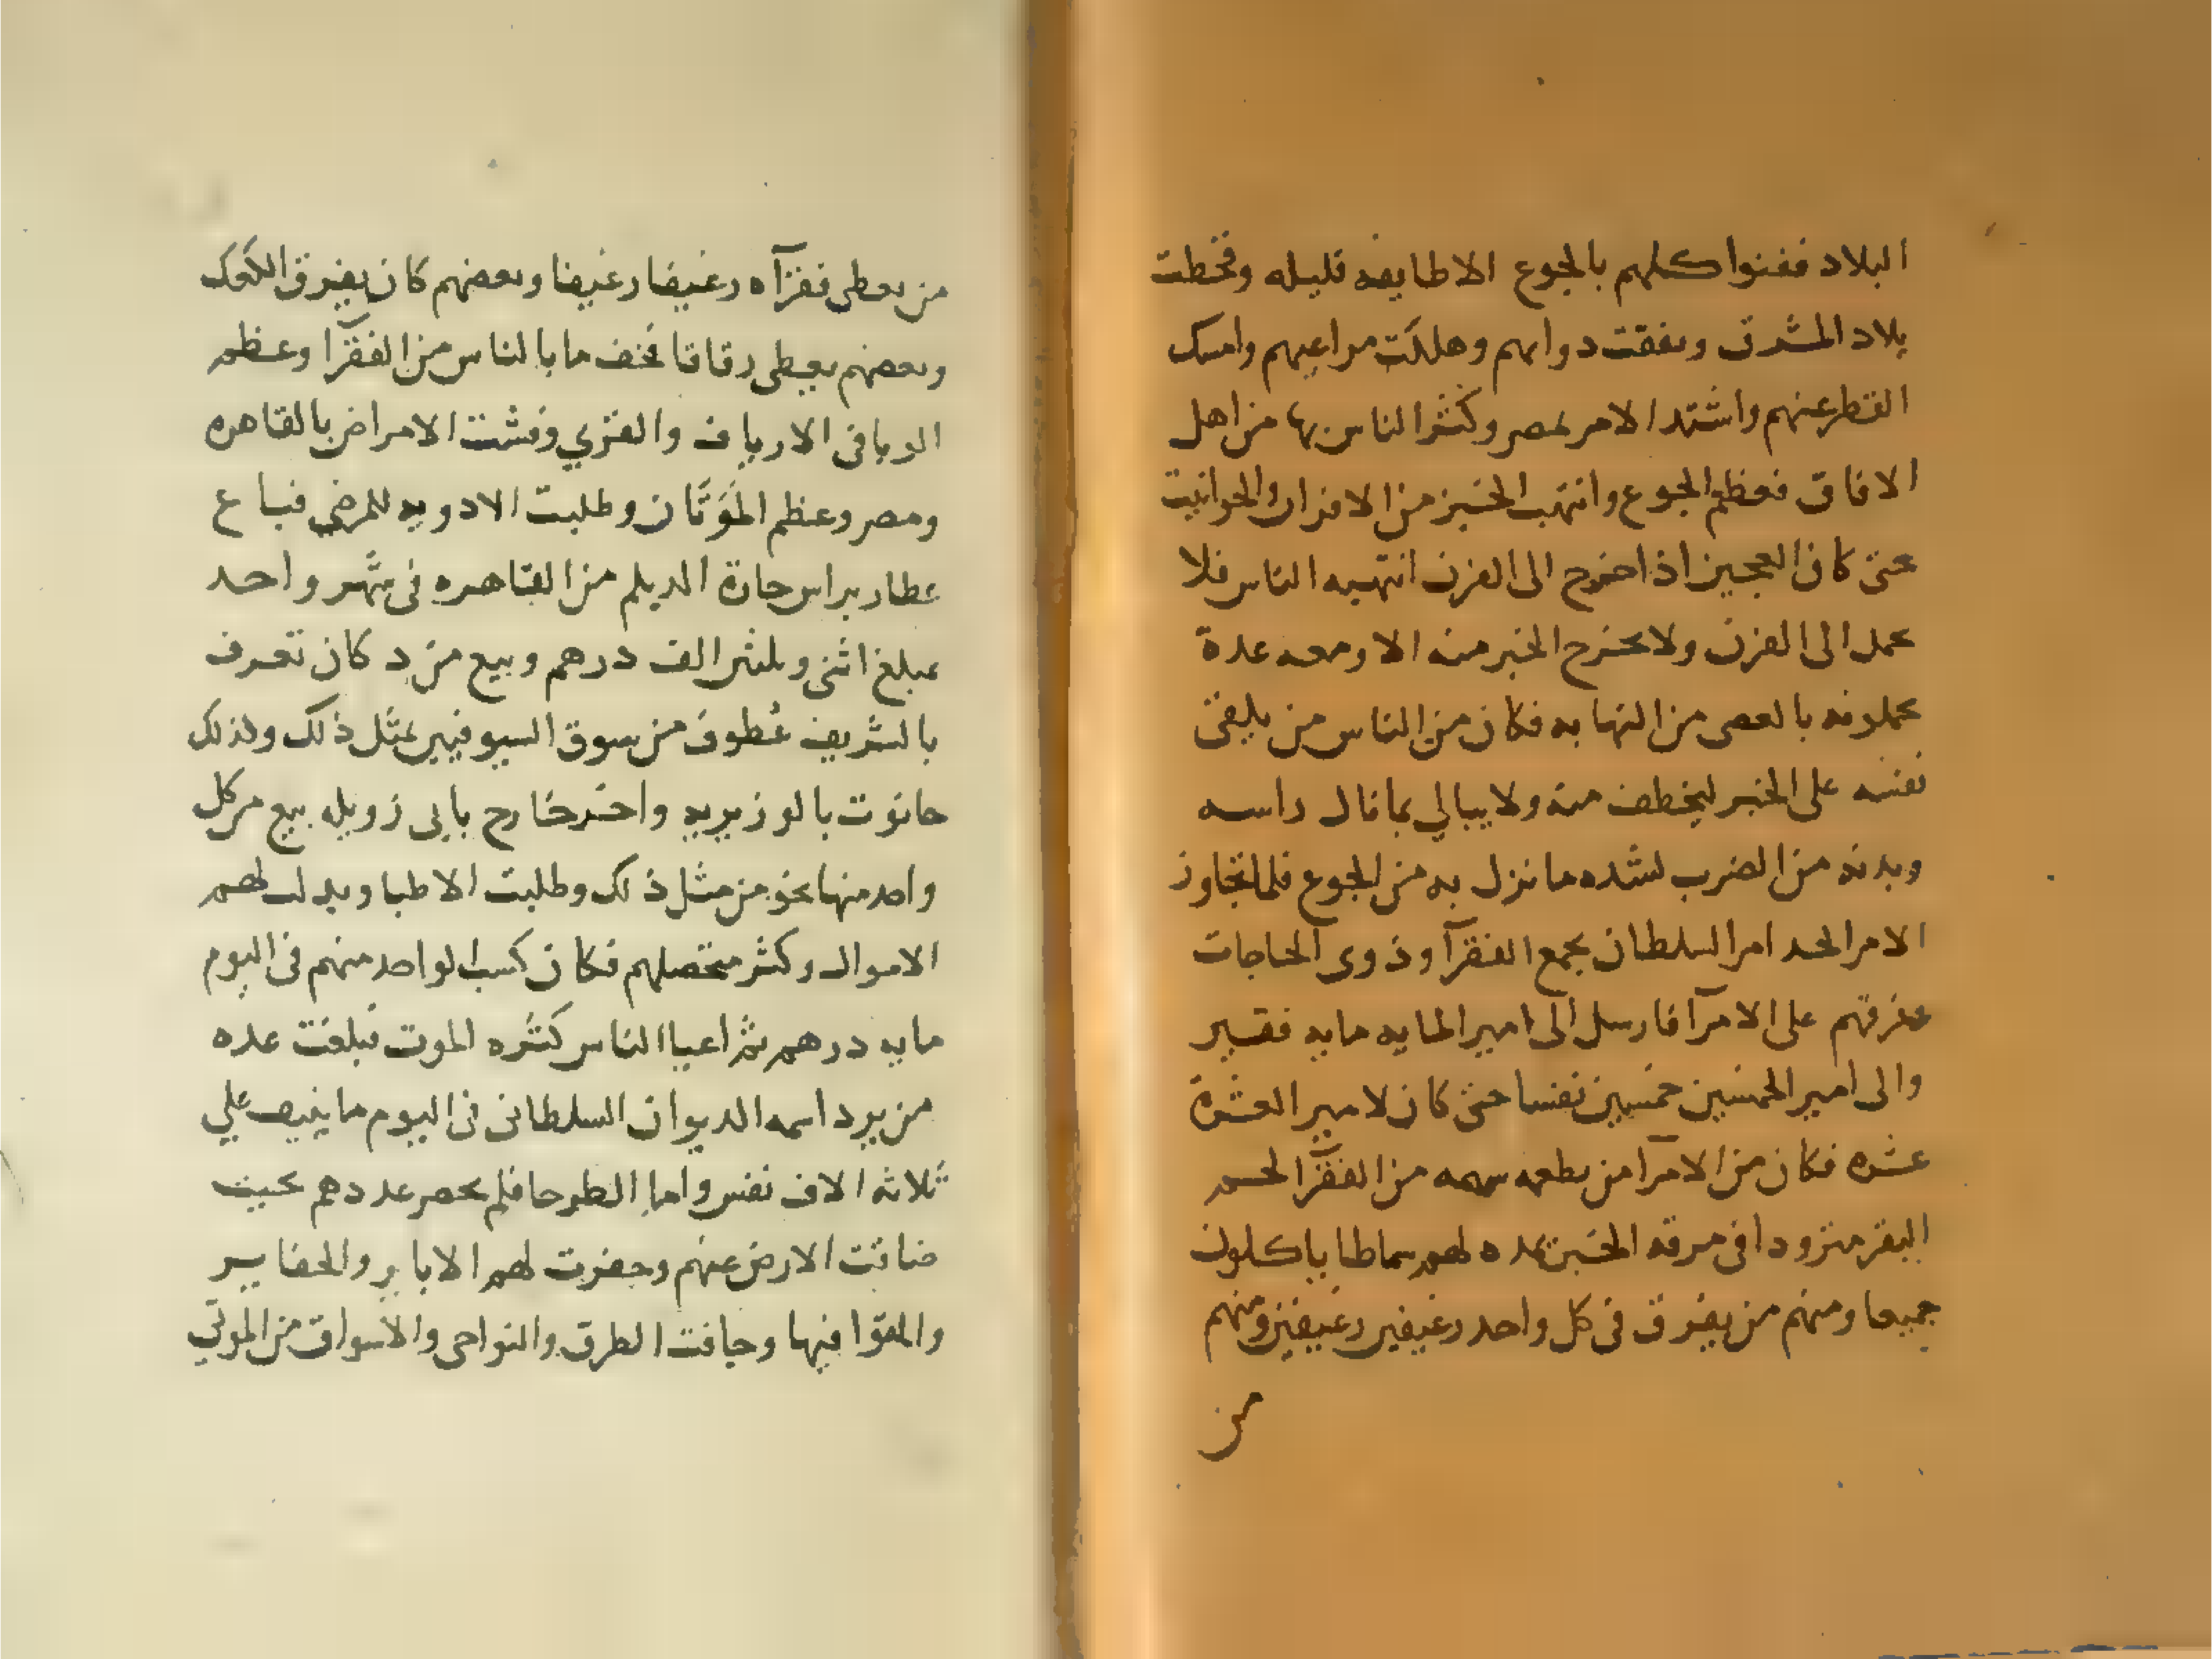 البلاد ففنوا كلهم بالجوع الا طايفه قليله وقحطت
بلاد المشرق ونفقت دوابهم وهلكت مراعيهم وامسك
القطر عنهم واشتد الامر بمصر وكثر الناس بها من اهل
الافاق فعظم الجوع وانتهب الخبز من الافران والحوانيت
حتى كان العجين اذا خرج الى الفرن انتهبه الناس فلا
يحمل الى الفرن ولا يخرج الخبز منه الا ومعه عدة
يحملونه بالعصى من النهابه فكان من الناس من يلقى
نفسه على الخبز ليخطف منه ولا يبالي بما نال راسه
وبدنه من الضرب لشده ما نزل به من الجوع فلما تجاوز
الامر الحد امر السلطان بجمع الفقرآ وذوى الحاجات
وفرقهم على الامرآ فارسل الى امير المايه مايه فقير
والى امير الخمسين خمسين نفسا حتى كان لامير العشرة
عشره فكان من الامرآ من يطعم سهمه من الفقرآ لحم
البقر مثرودا فى مرقه الخبز يمده لهم سماطا ياكلون
جميعا ومنهم من يفرق فى كل واحد رغيفين رغيفين ومنهم
من
من يعطى فقرآه رغيفا رغيفا وبعضهم كان يفرق الكعك
وبعضهم يعطى رقاقا فخف ما بالناس من الفقرآ وعظم
الوبا فى الارياف والقري وفشت الامراض بالقاهره
ومصر وعظم الموتان وطلبت الادويه للمرضى فباع
عطار براس حارة الديلم من القاهره فى شهر واحد
بمبلغ اثنى وثلثين الف درهم وبيع من د كان تعرف
بالشريف عُطوف من سوق السيوفيين بمثل ذلك وكذلك
حانوت بالوزيريه واخر خارج بابى زويله بيع من كل
واحد منها نحو من مثل ذلك وطلبت الاطبا وبدلت لهم
الاموال وكثر متحصلهم فكان كسب الواحد منهم فى اليوم
مايه درهم ثم اعيا الناس كثره الموت فبلغت عده
من يرد اسمه الديوان السلطانى فى اليوم ما ينيف على
ثلاثه الاف نفس واما الطرحا فلم يحصر عددهم بحيث
ضاقت الارض عنهم وحفرت لهم الابابر والحفاير
والقوا فيها وجافت الطرق والنواحى والاسواق من الموتى